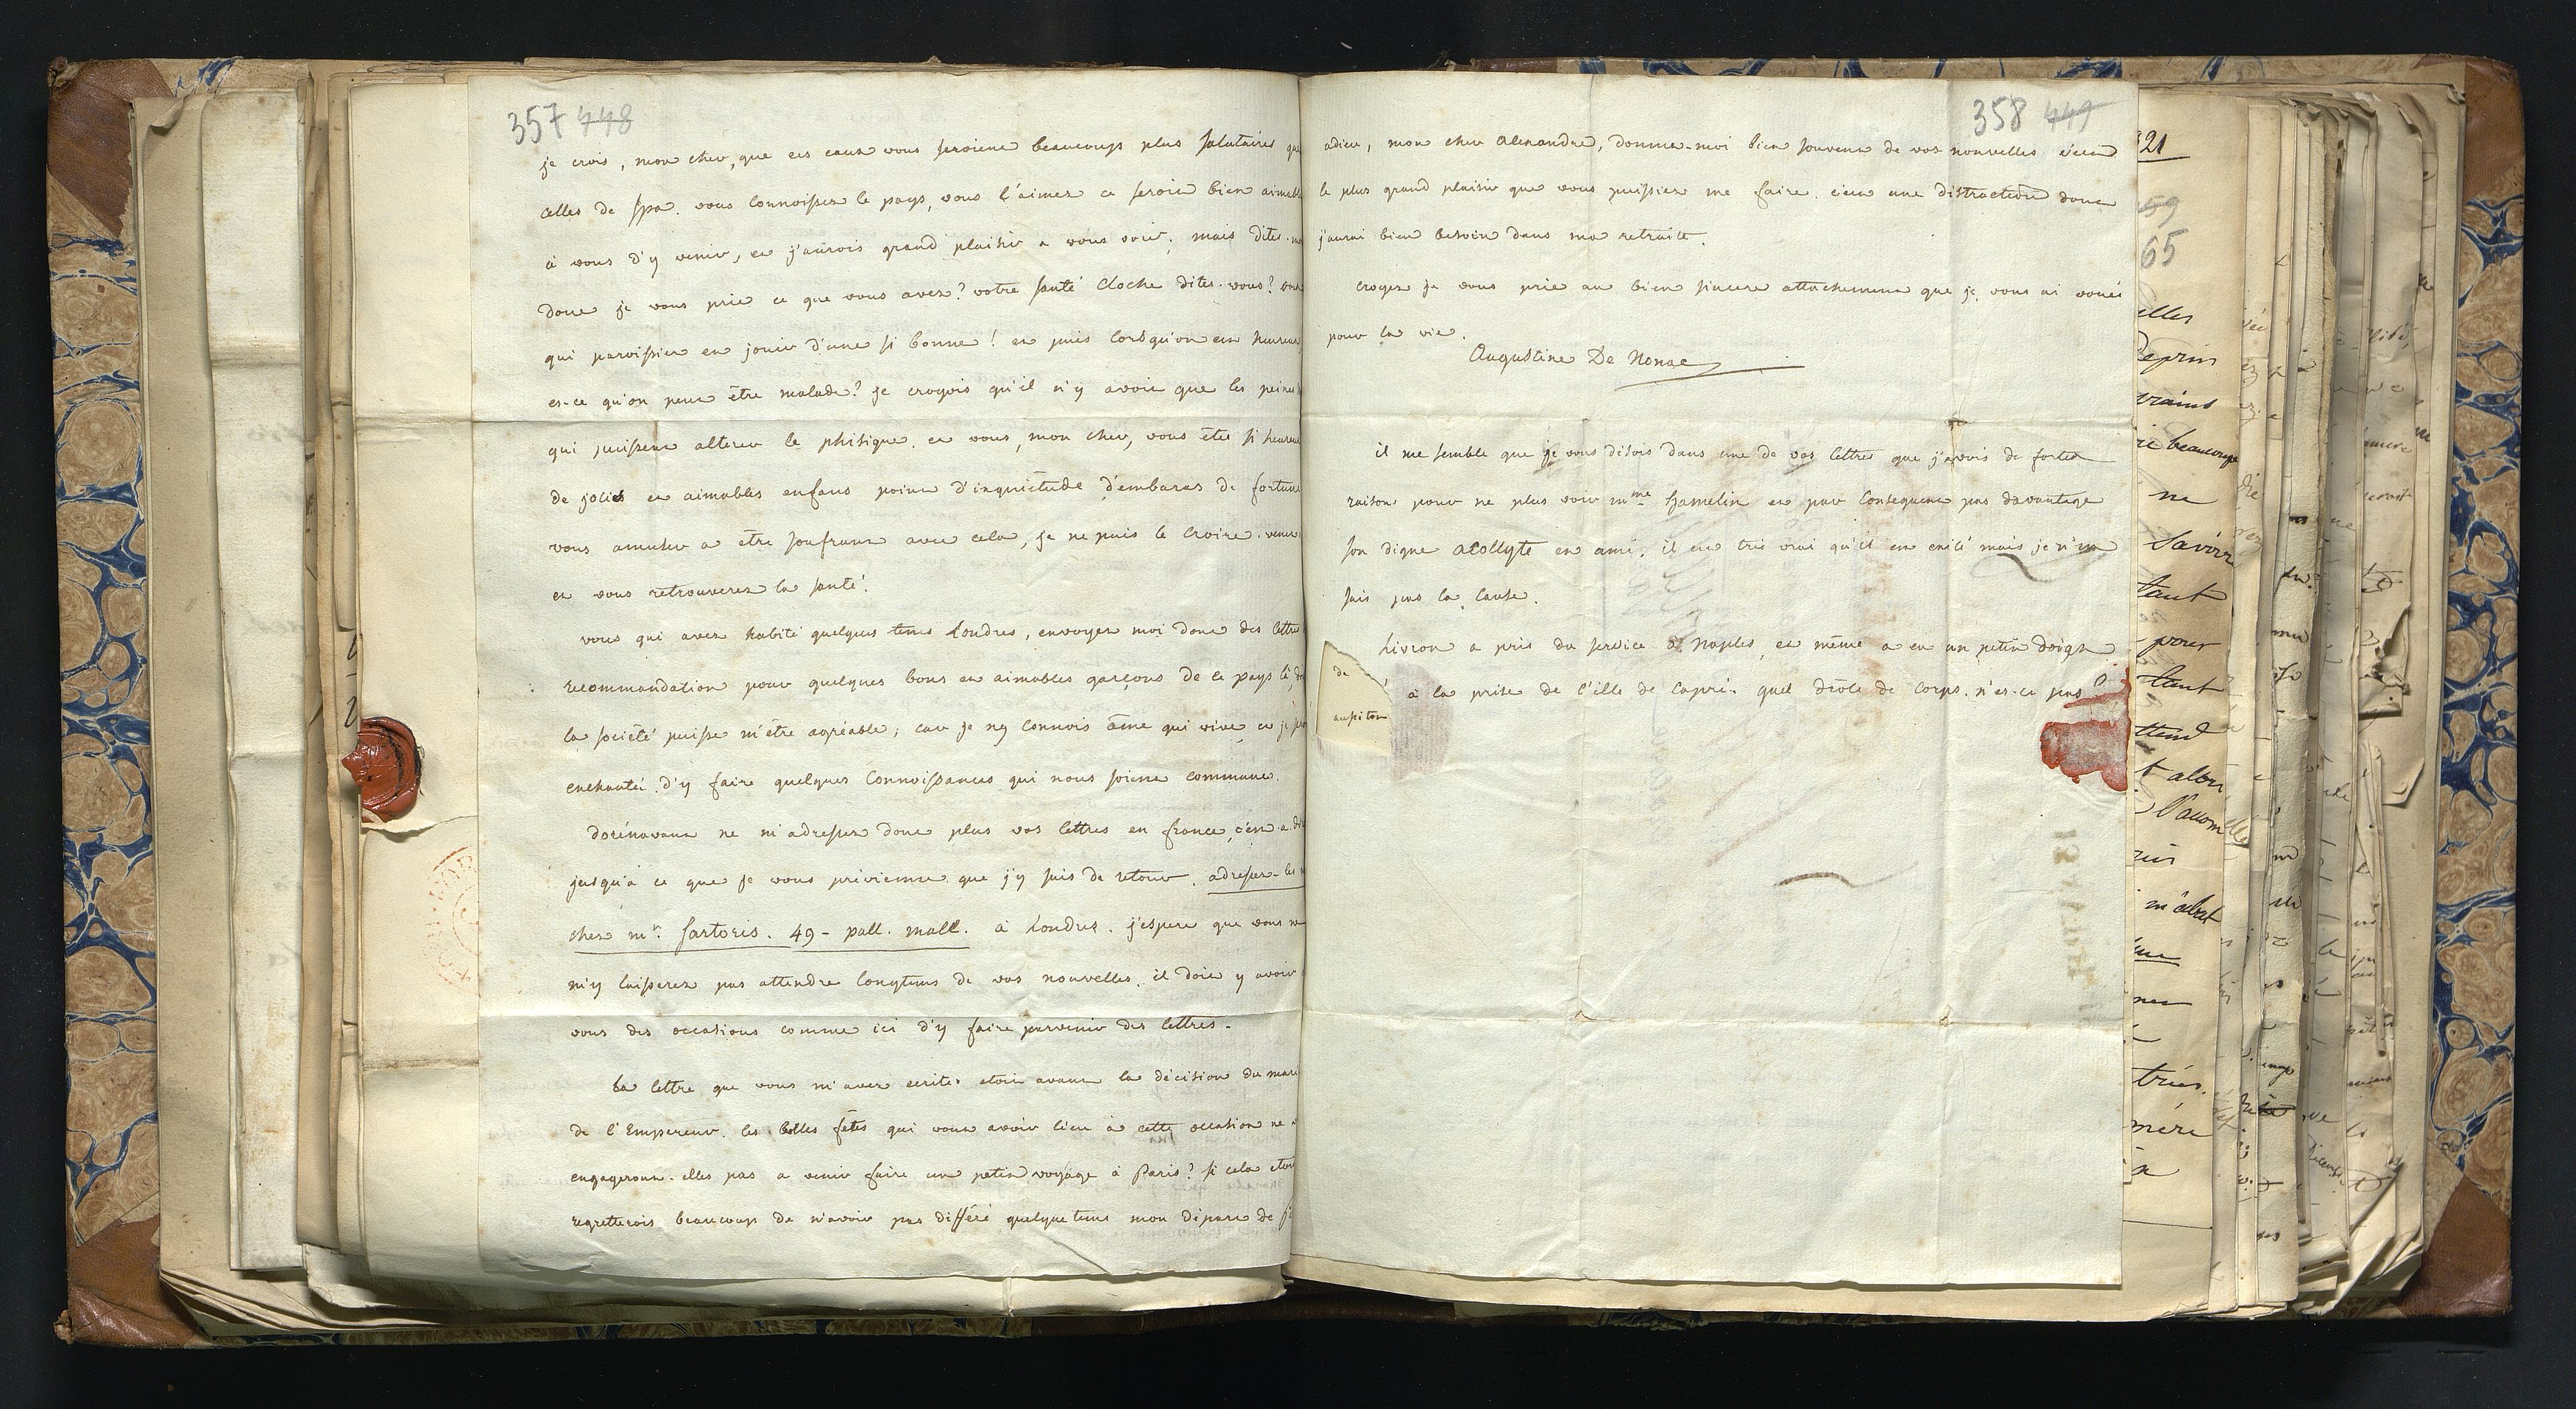 357 448
je crois, mon cher, que ces eaux vous seroient beaucoup plus salutaires que
celles de spa. vous connoissez le pays, vous l'aimez ce seroit bien aimable
à vous d'y venir, et j'aurois grand plaisir a vous voir. mais dites-moi
donc je vous prie ce que vous avez? votre santé cloche dites-vous? vous
qui paroissiez en jouir d'une si bonne! et puis lorsqu'on est heureux
es-ce qu'on peut être malade? je croyois qu'il n'y avoit que les peines
qui puissent alterer le phisique. et vous, mon cher, vous êtes si heureux
de jolies et aimables enfans point d'inquiétude d'embaras de fortune
vous amuser a être soufrant avec cela, je ne puis le croire. venez
et vous retrouverez la santé.
vous qui avez habité quelques tems Londres, envoyez moi donc des lettres
recommandation pour quelques bons et aimables garçons de ce pays là, dont
la société puisse m'être agréable; car je ny connois âme qui vive, et je
enchanté d'y faire quelques connoissances qui nous soient communes.
dorénavant ne m'adressez donc plus vos lettres en france, c'est-a-dire
jusqu'à ce que je vous prévienne que j'y suis de retour. adressez-les
chez mr. Sartoris. 49 - pall. mall. à Londres. j'espere que vous ne
m'y laisserez pas attendre longtems de vos nouvelles. il doit y avoir
vous des occasions comme ici d'y faire parvenir des lettres.
La lettre que vous m'avez ecrites etoit avant la décision du
de l'Empereur. les belles fêtes qui vont avoir lieu à cette occasion ne
engageront-elles pas a venir faire un petit voyage à Paris? si cela etoit
regretterois beaucoup de n'avoir pas différé quelque tems mon départ de
358 449
adieu, mon cher Alexandre, donnez-moi bien souvent de vos nouvelles c'est
le plus grand plaisir que vous puissiez me faire. c'est une distraction dont
j'aurai bien besoin dans ma retraite.
croyez je vous prie au bien sincere attachement que je vous ai voués
pour la vie.
Augustine De Nonac
il me semble que je vous disois dans une de vos lettres que j'avois de fortes
raisons pour ne plus voir mme hamelin et par consequent pas davantage
son digne acollyte et ami. il est très vrai qu'il est exilé mais je n'en
sais pas la cause.
Livron a pris du service à Naples, et même a eu un petit doigt
de à la prise de l'ille de Capri. quel drole de corps. n'es-ce pas?
321
59
65
beaucoup
ne
Savoir
tant
pour
tant
mère